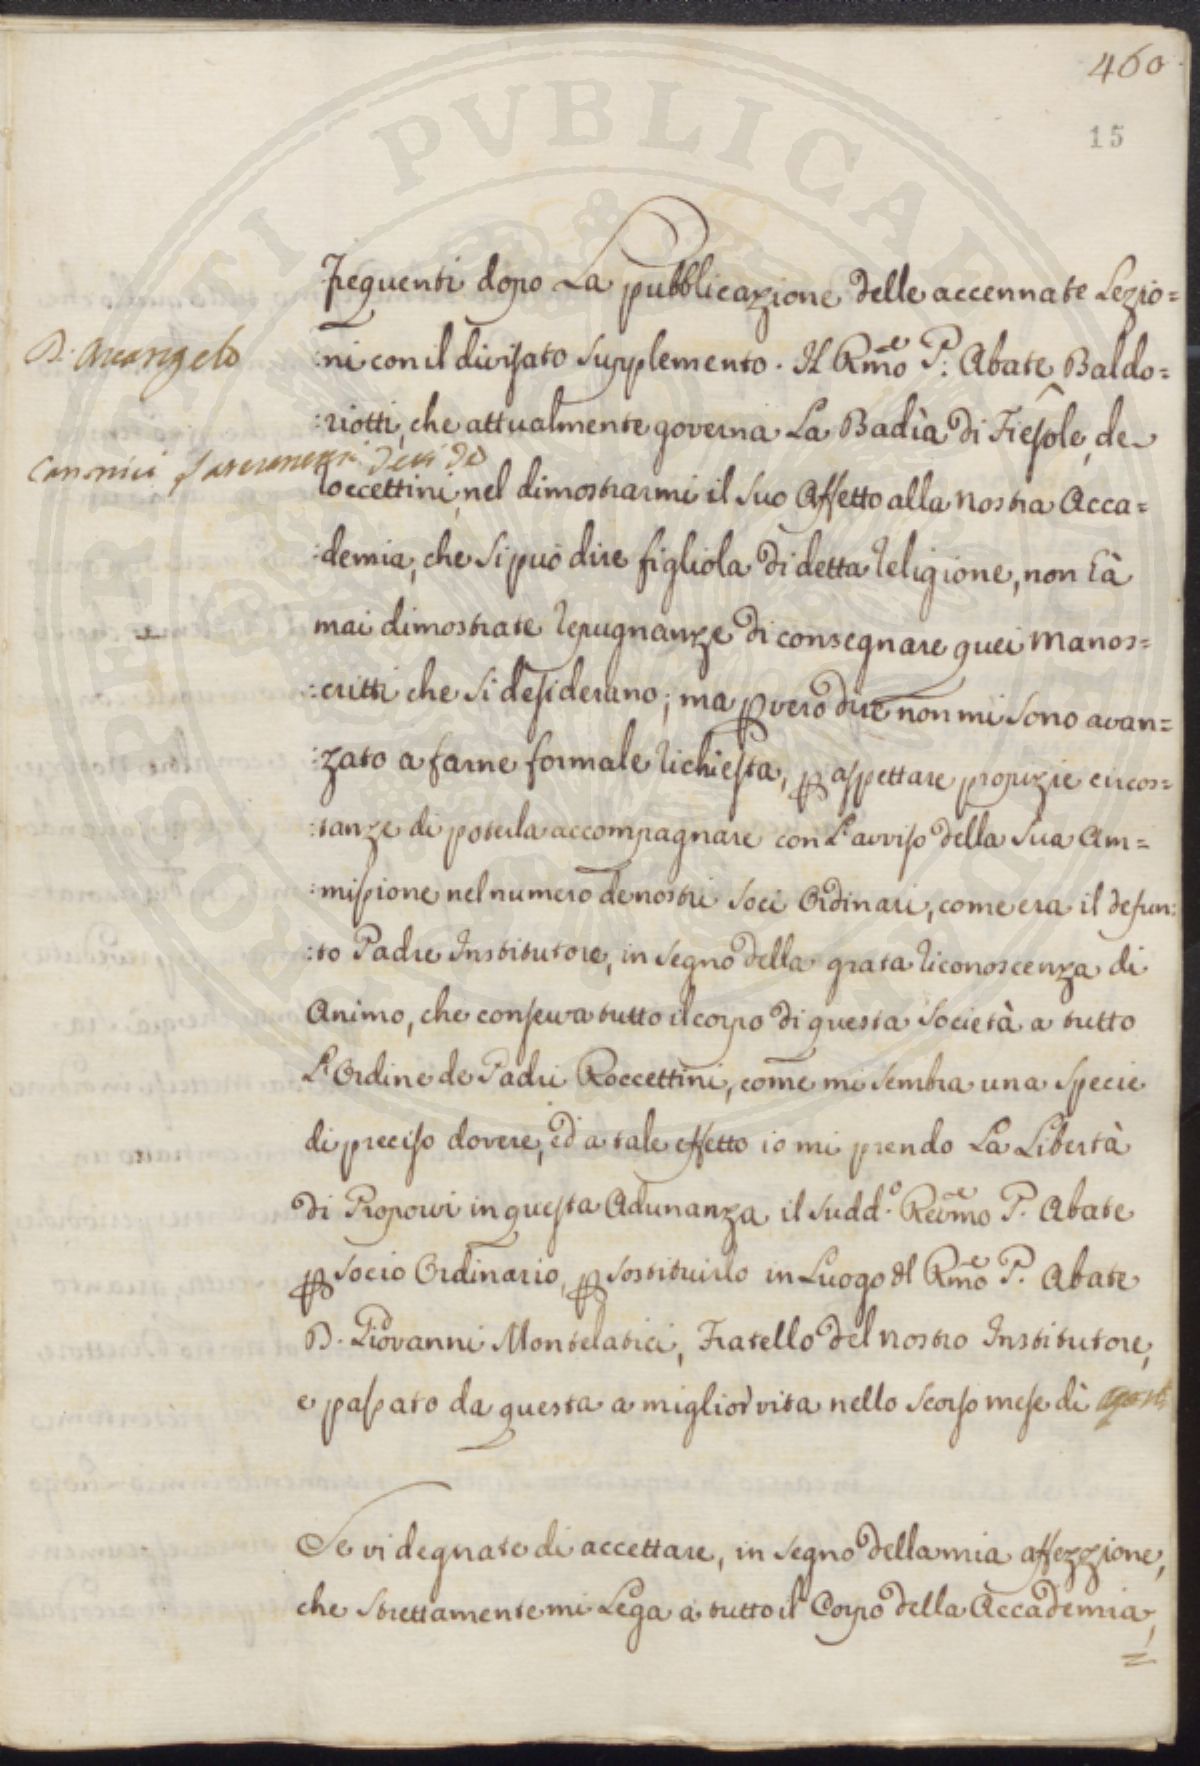 460
15
frequenti dopo La pubblicazione delle accennate Lezio=
D. Arcangelo
:ni con il divisato supplemento. Il Rmo͠e P: Abate Baldo=
:riotti, che attualmente governa La Badìa di Fiesole, de
Canonici Lateranensi
Roccettini, nel dimostrarmi il suo Affetto alla nostra Acca=
:demia, che si può dire figliola di detta Religione, non hà
mai dimostrate repugnanze di consegnare quei Manos=
:critti che si desiderano; ma p vero dire non mi sono avan=
:zato a farne formale richiesta, p aspettare propizie circos=
:tanze di poterla accompagnare con L'avviso della sua Am=
:missione nel numero de nostri Soci Ordinari, come era il defun=
:to Padre Institutore, in segno della grata riconoscenza di
Animo, che conserva tutto il corpo di questa Società a tutto
L'Ordine de Padri Roccettini, come mi sembra una specie
di preciso dovere, ed a tale effetto io mi prendo La Libertà
di Proporvi in questa Adunanza il sudd.o Revmo͠e P. Abate
p Socio Ordinario, p sostituirlo in Luogo del Rmo͠e P. Abate
D. Giovanni Montelatici, Fratello del nostro Institutore,
e passato da questa a miglior vita nello scorso mese di
Se vi degnate di accettare, in segno della mia affezzione,
che strettamente mi Lega a tutto il Corpo della Accademia,